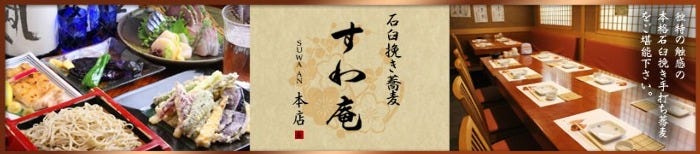 石臼挽き蕎麦
すわ庵
SUWA AN
本店
独特の触感の
本格石臼挽き手打ち蕎麦
をご堪能下さい。